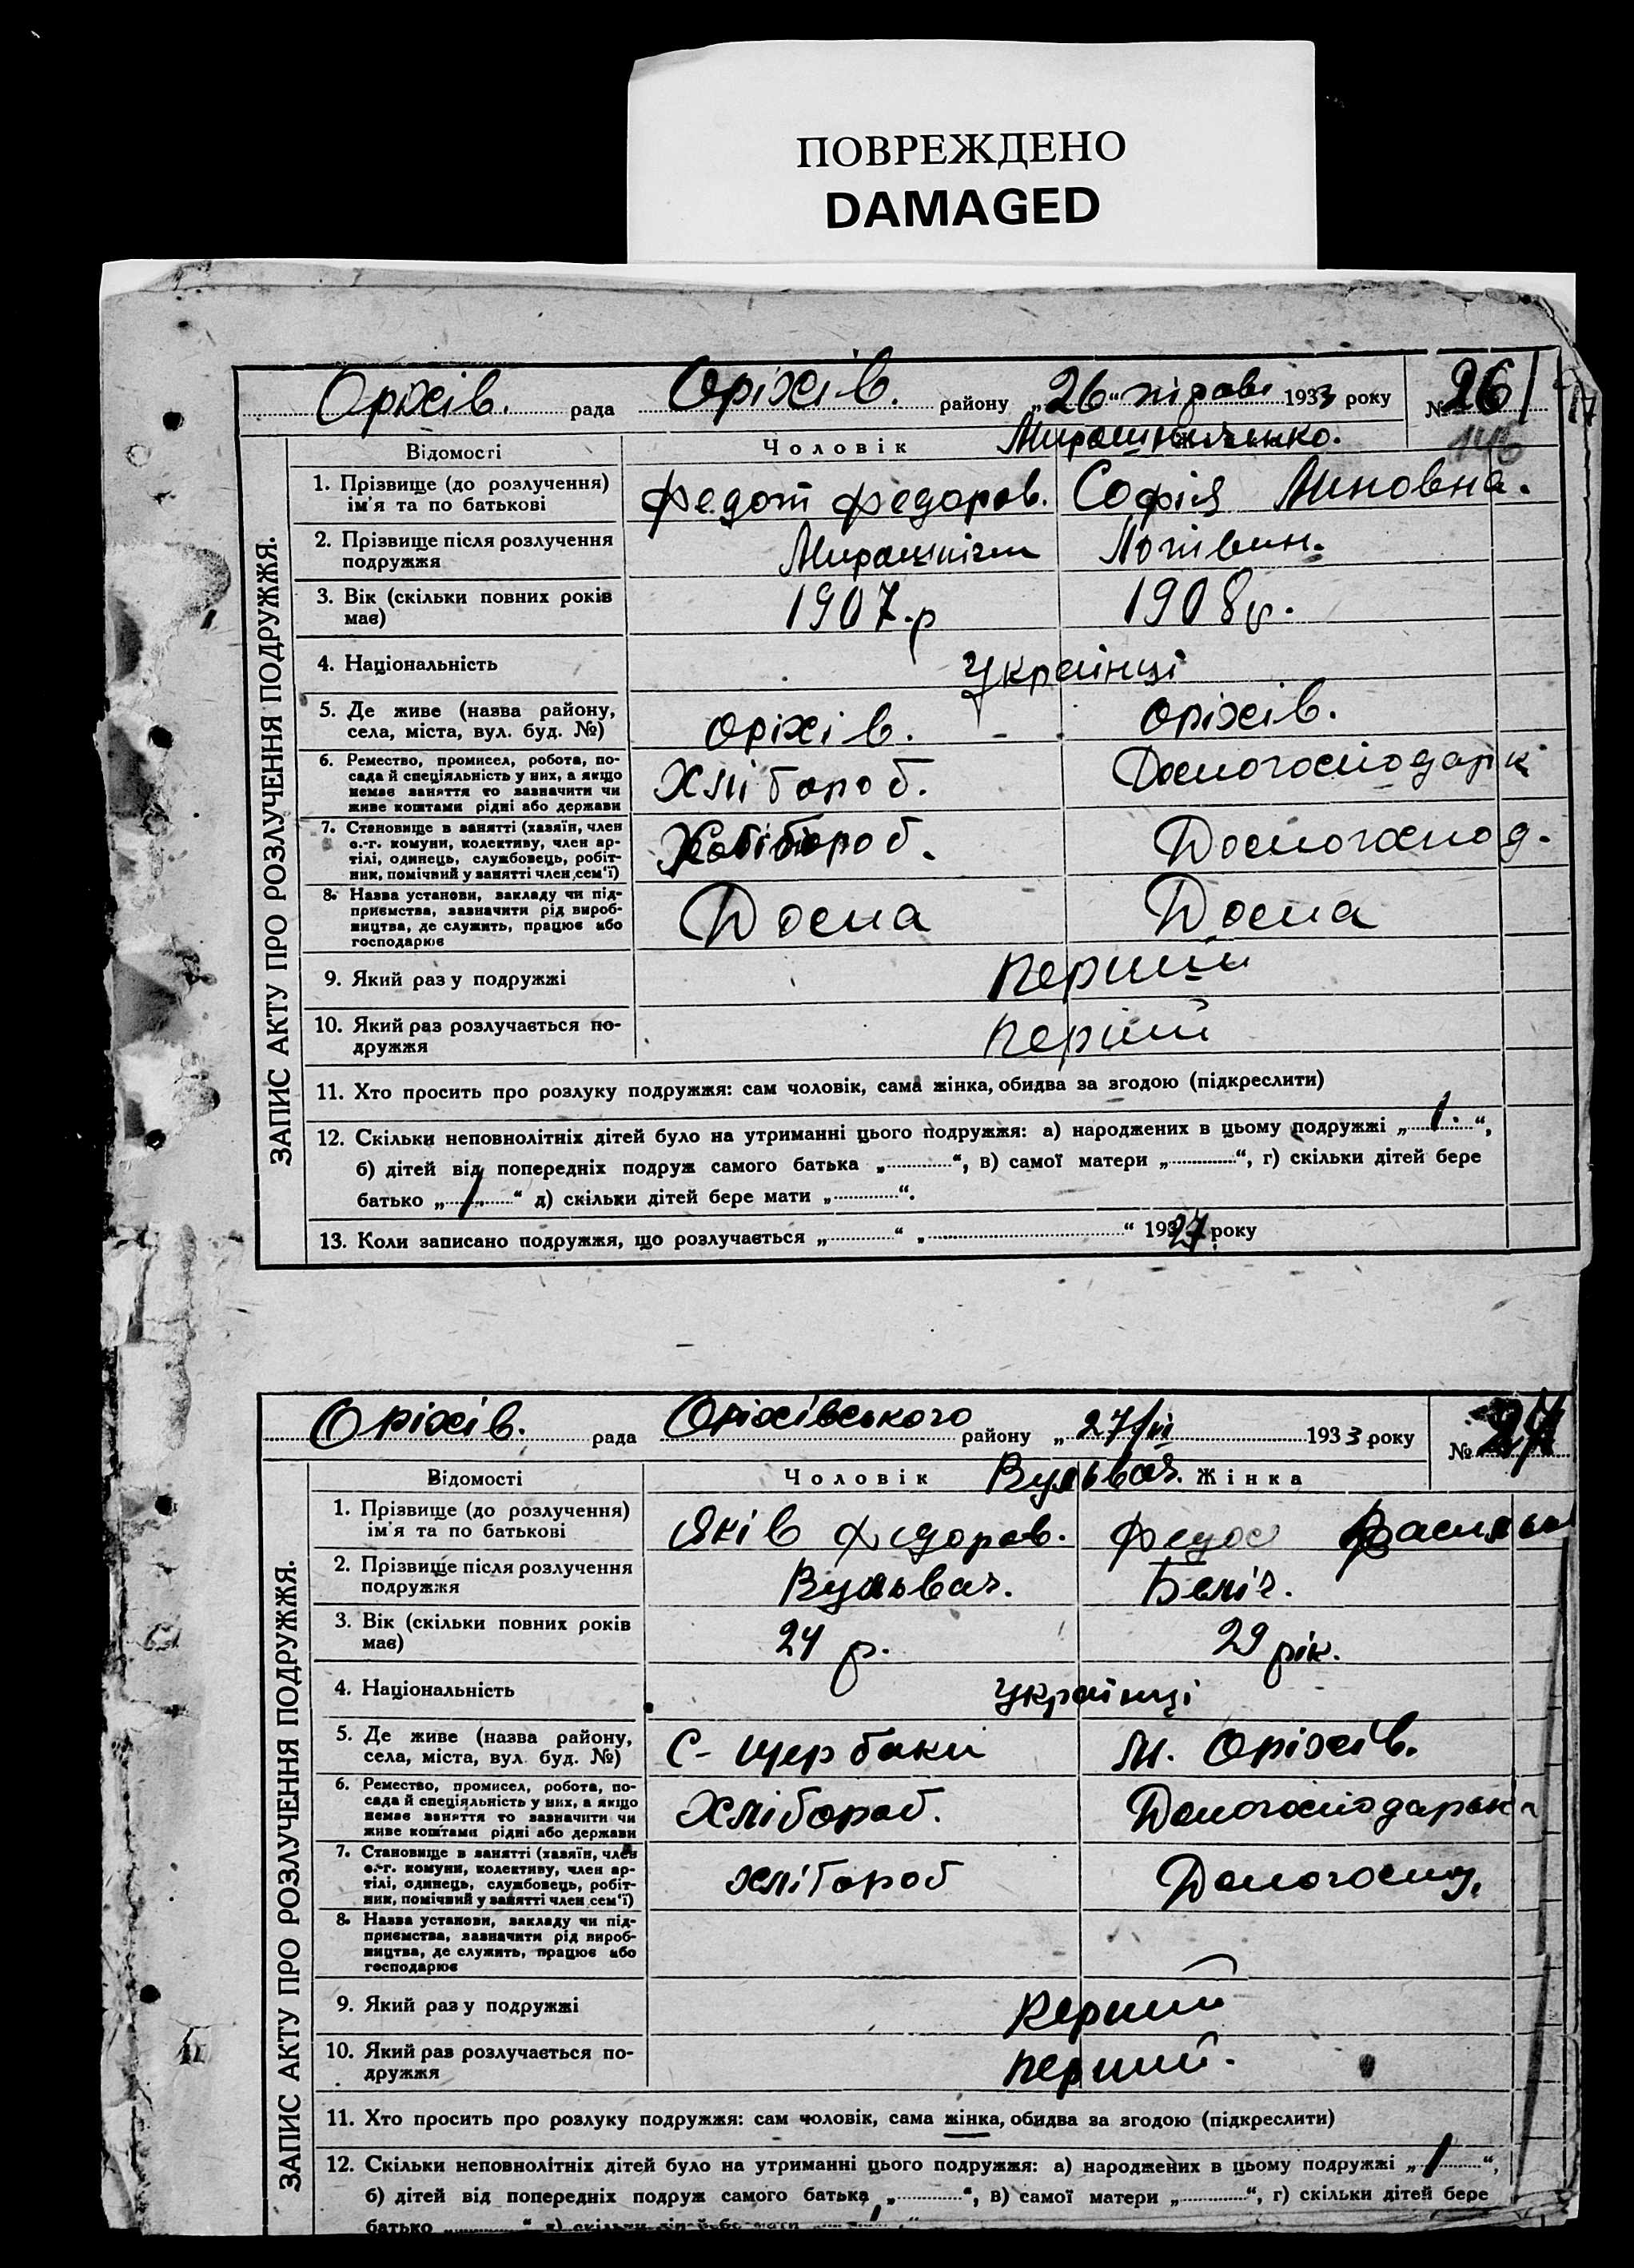 ПОВРЕЖДЕНО
DAMAGED
Оріхів. рада Оріхів. району „26“ 1933 року № 26
146
Відомості Чоловік Мирошниченко.
ЗАПИС АКТУ ПРО РОЗЛУЧЕННЯ ПОДРУЖЖЯ.
1. Прізвище (до розлучення) ім'я та по батькові Федот Федоров. Софія Миновна.
2. Прізвище після розлучення подружжя Литвин.
3. Вік (скільки повних років має) 1907.р 1908р.
4. Національність Українці
5. Де живе (назва району, села, міста, вул. буд. №) Оріхів. Оріхів.
6. Ремество, промисел, робота, по-
сада й спеціяльність у них, а якщо
немає заняття то зазначити чи
живе коштами рідні або держави Хлібороб. Домогосподарк
7. Становище в занятті (хазяїн, член
с.-г. комуни, колективу, член ар-
тілі, одинець, службовець, робіт-
ник, помічний у занятті член сем'ї) Хлібороб. Домогоспод.
8. Назва установи, закладу чи під-
приємства, зазначити рід вироб-
ництва, де служить, працює або
господарює Дома Дома
9. Який раз у подружжі перший
10. Який раз розлучається по-
дружжя перший
11. Хто просить про розлуку подружжя: сам чоловік, сама жінка, обидва за згодою (підкреслити)
12. Скільки неповнолітніх дітей було на утриманні цього подружжя: а) народжених в цьому подружжі „1.“,
б) дітей від попередніх подруж самого батька „ “, в) самої матери „ “, г) скільки дітей бере
батько „1“ д) скільки дітей бере мати „ “.
13. Коли записано подружжя, що розлучається „ “ „ “ 1927 року
Оріхів. рада Оріхівського району „27/VI 1933 року № 27
Відомості Чоловік Жінка
ЗАПИС АКТУ ПРО РОЗЛУЧЕННЯ ПОДРУЖЖЯ.
1. Прізвище (до розлучення) ім'я та по батькові Яків Федоров.
2. Прізвище після розлучення подружжя
3. Вік (скільки повних років має) 24 р. 29 рік.
4. Національність Українці
5. Де живе (назва району, села, міста, вул. буд. №) С- Щербаки м. Оріхів.
6. Ремество, промисел, робота, по-
сада й спеціяльність у них, а якщо
немає заняття то зазначити чи
живе коштами рідні або держави Хлібороб. Домогосподарка
7. Становище в занятті (хазяїн, член
с.-г. комуни, колективу, член ар-
тілі, одинець, службовець, робіт-
ник, помічний у занятті член сем'ї) хлібороб Домогосп.
8. Назва установи, закладу чи під-
приємства, зазначити рід вироб-
ництва, де служить, працює або
господарює
9. Який раз у подружжі перший
10. Який раз розлучається по-
дружжя перший.
11. Хто просить про розлуку подружжя: сам чоловік, сама жінка, обидва за згодою (підкреслити)
12. Скільки неповнолітніх дітей було на утриманні цього подружжя: а) народжених в цьому подружжі „1“,
б) дітей від попередніх подруж самого батька „ “, в) самої матери „ “, г) скільки дітей бере
батько „ “ д) скільки дітей бере мати „ “